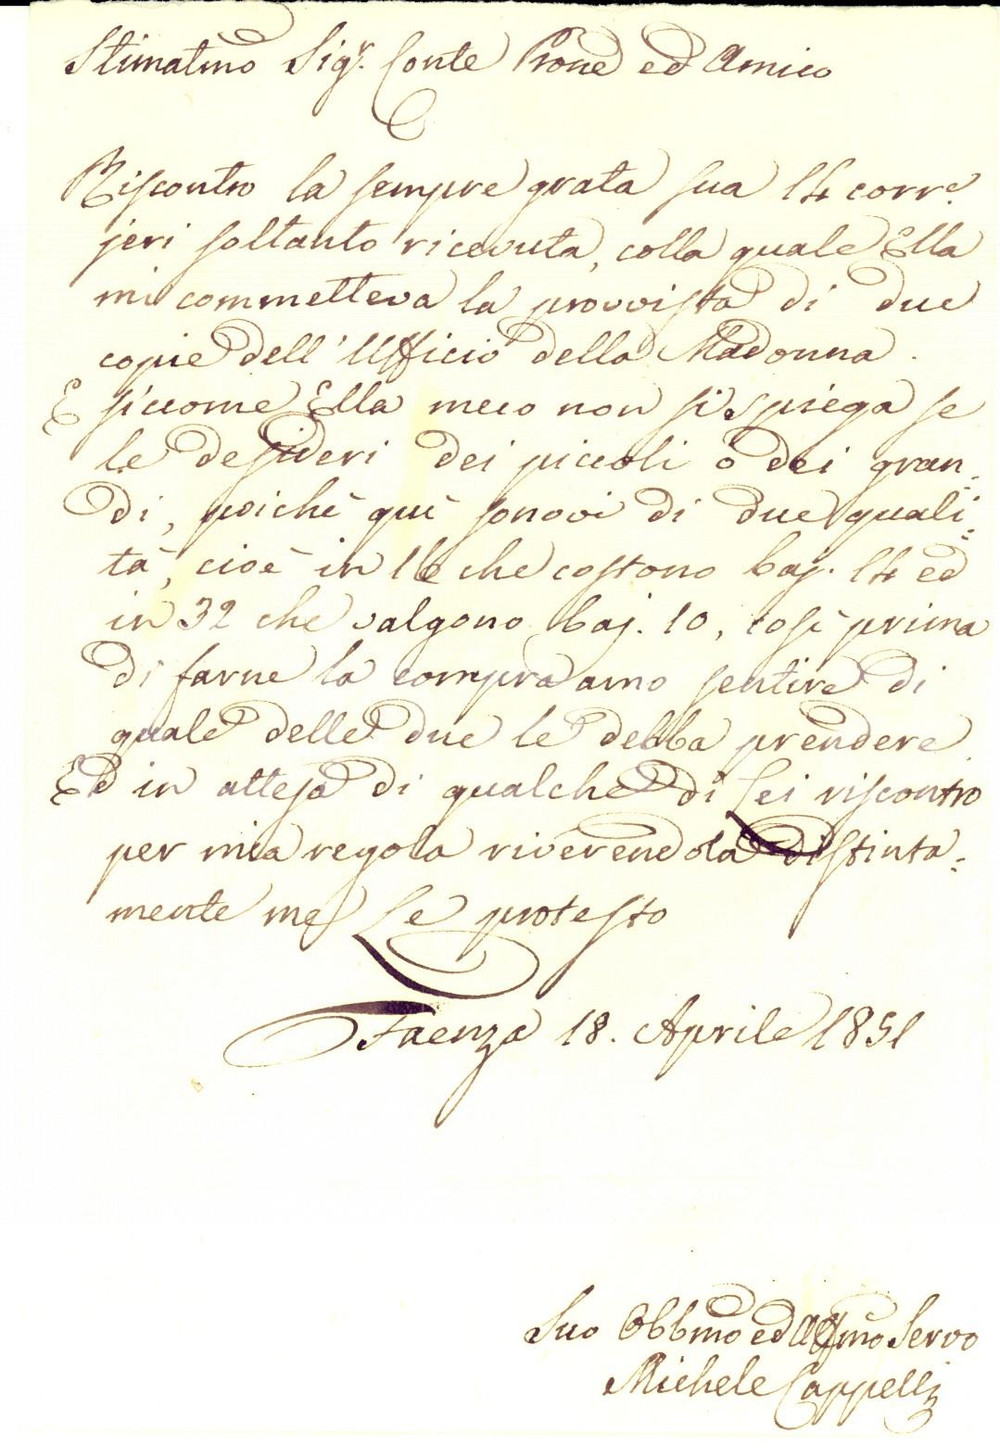 Stimatmo Sigr. Conte Prone ed Amico
Riscontro la sempre grata sua 14 corre.
jeri soltanto ricevuta, colla quale Ella
mi commetteva la provvista di due
copie dell'Ufficio della Madonna.
E siccome Ella meco non si spiega se
le desideri dei piccoli o dei gran=
di, poichè quì sonovi di due quali=
tà, cioè in 16 che costono baj. 14 ed
in 32 che valgono baj. 10, così prima
di farne la compra amo sentire di
quale delle due le debba prendere
Ed in attesa di qualche di Lei riscontro
per mia regola riverendola distinta=
mente me Le protesto
Faenza 18. Aprile 1851
Suo Obbmo ed Affmo Servo
Michele Cappelli